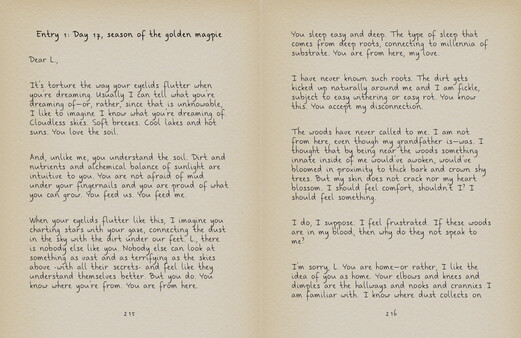 Entry 1: Day 17, season of the golden magpie
Dear L,
It's torture the way your eyelids flutter when
you're dreaming. Usually I can tell what you're
dreaming of—or, rather, since that is unknowable,
I like to imagine I know what you're dreaming of
Cloudless skies. Soft breezes. Cool lakes and hot
suns. You love the soil.
And, unlike me, you understand the soil. Dirt and
nutrients and alchemical balance of sunlight are
intuitive to you. You are not afraid of mud
under your fingernails and you are proud of what
you can grow. You feed us. You feed me.
When your eyelids flutter like this, I imagine you
charting stars with your gaze, connecting the dust
in the sky with the dirt under our feet. L, there
is nobody like you. Nobody else can look at
something as vast and as terrifying as the skies
above -with all their secrets- and feel like they
understand themselves better. But you do. You
know where you're from. You are from here.
215
You sleep easy and deep. The type of sleep that
comes from deep roots, connecting to millennia of
substrate. You are from here, my love.
I have never known such roots. The dirt gets
kicked up naturally around me and I am fickle,
subject to easy withering or easy rot. You know
this. You accept my disconnection.
The woods have never called to me. I am not
from here, even though my grandfather is—was. I
thought that by being near the woods something
innate inside of me would've awoken, would've
bloomed in proximity to thick bark and crown shy
trees. But my skin does not crack nor my heart
blossom. I should feel comfort, shouldn't I? I
should feel something.
I do, I suppose. I feel frustrated. If these woods
are in my blood, then why do they not speak to
me?
I'm sorry, L. You are home—or rather, I like the
idea of you as home. Your elbows and knees and
dimples are the hallways and nooks and crannies I
am familiar with. I know where dust collects on
216